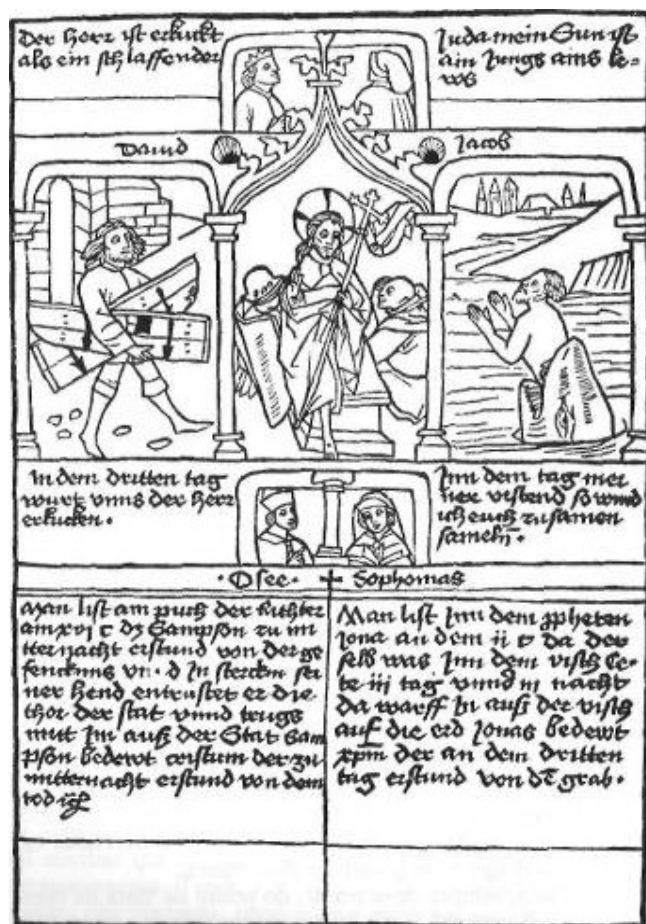 Der herr ist erkuckt
als ein schlaffender
Juda mein Sun ist
ain Jungs ains le-
ws
Dauid
Jacob
In dem dritten tag
wurt vnns der herr
erkucken.
Inn dem tag mei
ner vrstend so wird
ich euch zu samen
Osee. Sophomas
Man list am puch der Richter
am xvj c dz Sampson zu mi
tternacht erstund von der ge
fencknus vn d Jn sterckin sei
ner hend entrustet er die
thor der stat vnnd trugs
mit Jm auß der Stat Sam
pson bedewt cristum der zu
mitternacht erstund von dem
tod
Man list Jnn dem ppheten
Jona an dem ij c da der
selb was Jnn dem visch le-
te iij tag vnnd iij nacht
da warff Jn auß der visch
auf die erd Jonas bedewt
xpm der an dem dritten
tag erstund von de grab.